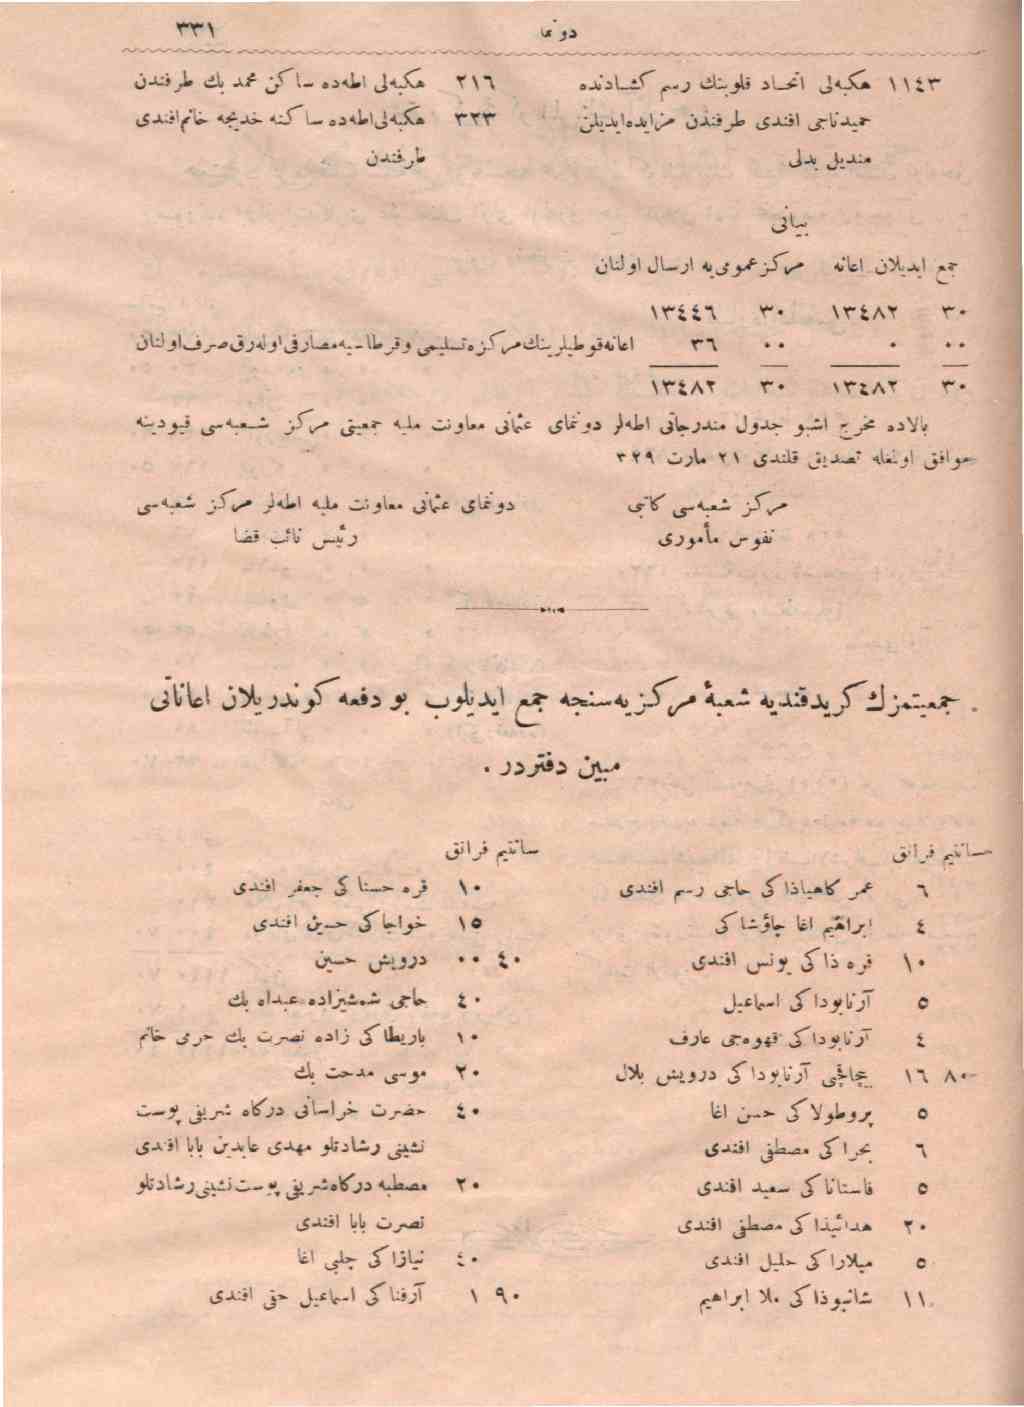 دونما ٣٣١
١١٤٣ هكبه‌لی اتحاد قلوبنك رسم كشادنده
حمیدناجی افندی طرفندن مزایده‌ایدیلن
مندیل بدلی
٢١٦ هكبه‌لی اطه‌ده ساكن محمد بك طرفندن
٣٢٣ هكبه‌لی‌اطه‌ده ساكنه خدیجه خانم‌افندی
طرفندن
بیانی
جمع ایدیلان اعانه مركزعمومی‌یه ارسال اولنان
٣٠ ١٣٤٨٢ ٣٠ ١٣٤٤٦
٠٠ ٠ ٠٠ ٣٦ اعانه‌قوطیلرینك‌مركزه‌تسلیمی وقرطاسیه‌مصارفی‌اوله‌رق‌صرف‌اولنان
٣٠ ١٣٤٨٢ ٣٠ ١٣٤٨٢
بالاده مخرج اشبو جدول مندرجاتی اطه‌لر دونمای عثمانی معاونت ملیه جمعیتی مركز شعبه‌سی قیودینه
موافق اولمغله تصدیق قلندی ٢١ مارت ٣٢٩
مركز شعبه‌سی كاتبی
نفوس مأموری
دونمای عثمانی معاونت ملیه اطه‌لر مركز شعبه‌سی
رئیس نائب قضا
جمعیتمزك كریدقندیه شعبهٔ مركزیه‌سنجه جمع ایدیلوب بو دفعه كوندریلان اعاناتی
مبین دفتردر .
سانتیم فرانق
٦ عمر كاهیاذا كی حاجی رسم افندی
٤ ابراهیم اغا چاؤشا كی
١٠ قره ذا كی یونس افندی
٥ آرنابودا كی اسماعیل
٤ آرنابودا كی قهوه‌جی عارف
٨٠ ١٦ بیچاقجی آرنابودا كی درویش بلال
٥ پروطولا كی حسن اغا
٦ بحرا كی مصطفی افندی
٥ فاستانا كی سعید افندی
٢٠ هدائیذا كی مصطفی افندی
٥ میلارا كی خلیل افندی
١١ شانیوذا كی ملا ابراهیم
سانتیم فرانق
١٠ قره حسنا كی جعفر افندی
١٥ خواجا كی حسین افندی
٤٠ ٠٠ درویش حسین
٤٠ حاجی شمشیزاده عبدالله بك
١٠ باریطا كی زاده نصرت بك حرمی خانم
٢٠ موسی مدحت بك
٤٠ حضرت خراسانی دركاه شریفی پوست
نشینی رشادتلو مهدی عابدین بابا افندی
٢٠ مصطبه دركاه‌شریفی پوست نشینی رشادتلو
نصرت بابا افندی
٤٠ نیازا كی چلبی اغا
٩٠ ١ آرفنا كی اسماعیل حقی افندی